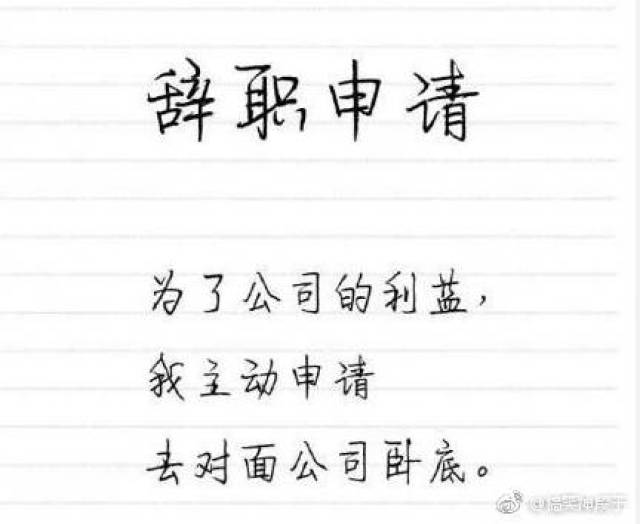 辞职申请
为了公司的利益，
我主动申请
去对面公司卧底。
@搞笑神段子